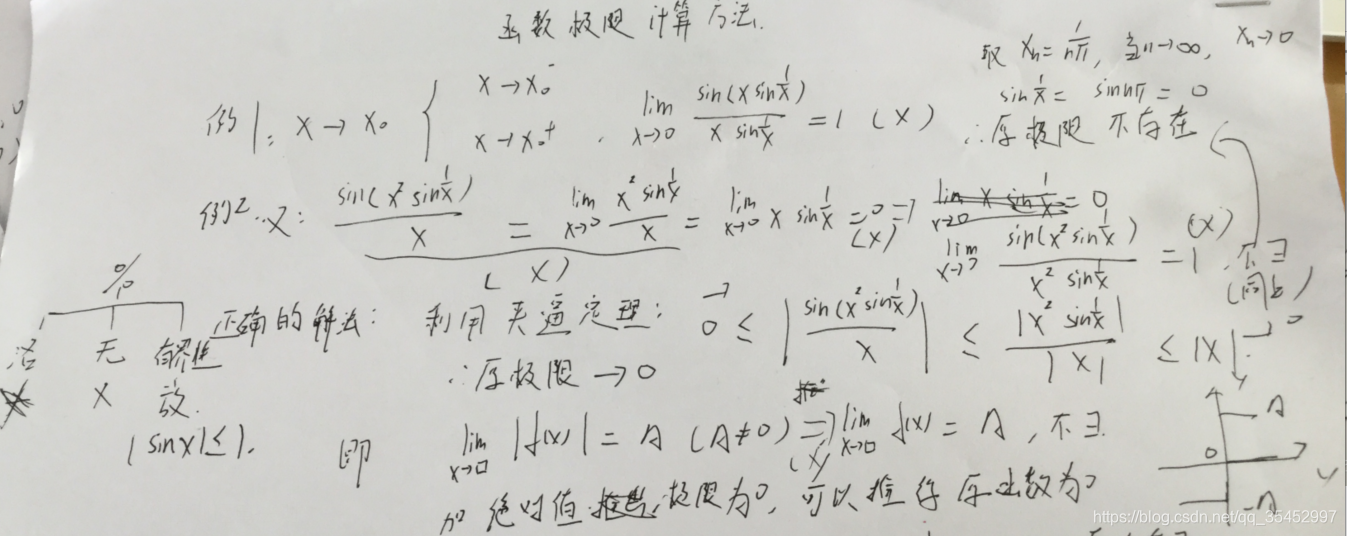 函数极限计算方法.
取 Xn = 1/nπ, 当n→∞, Xn→0
sin 1/x = sin nπ = 0
∴原极限 不存在
例1: X→X₀ { X→X₀⁻ X→X₀⁺ . lim x→0 sin(x sin 1/x) / (x sin 1/x) = 1 (X)
例2. 又: sin(x² sin 1/x) / x = lim x→0 (x² sin 1/x) / x = lim x→0 x sin 1/x = 0
(X)
(X)
lim x→0 x sin 1/x = 0
lim x→0 sin(x² sin 1/x) / (x² sin 1/x) = 1 (X) 不∃
(同上)
0/0
洛 无 有界性
X X 放.
|sinx|≤1.
正确的解法: 利用夹逼定理: 0 ≤ |sin(x² sin 1/x) / x| ≤ |x² sin 1/x| / |x| ≤ |x| → 0
∴原极限→0
即 lim x→0 |f(x)| = A (A≠0) ⇒ (X) lim x→0 f(x) = A, 不∃.
加绝对值 极限为0, 可以推得原函数为0
y
A
0
-A
https://blog.csdn.net/qq_35452997